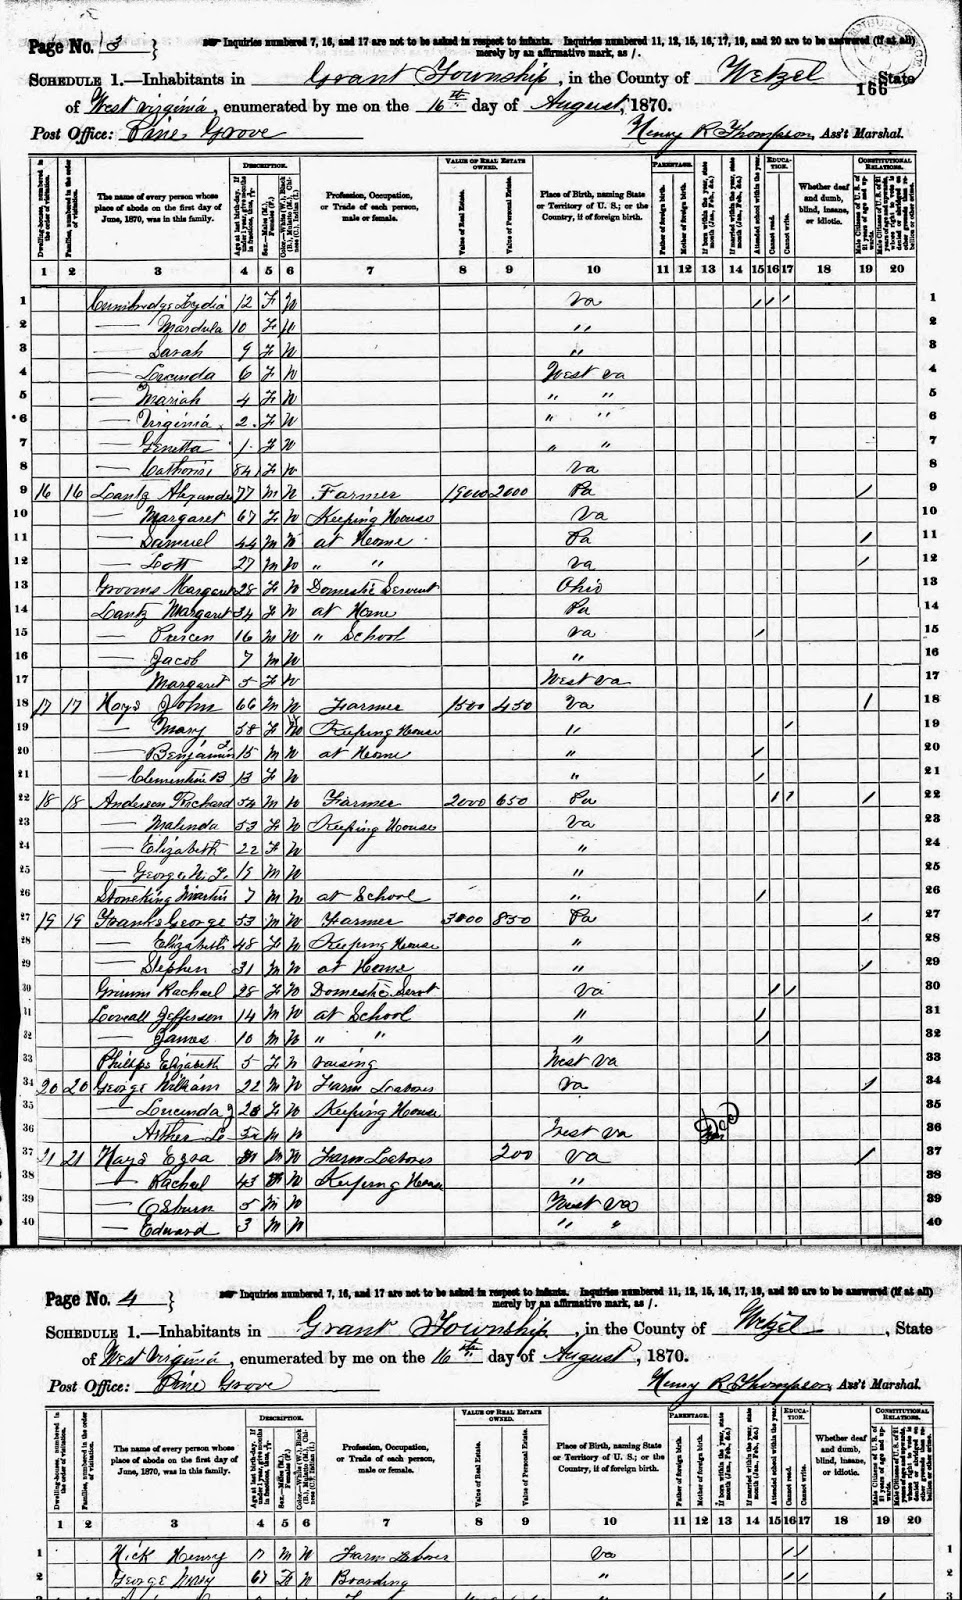 Page No. 3 }
☞ Inquiries numbered 7, 16, and 17 are not to be asked in respect to infants. Inquiries numbered 11, 12, 15, 16, 17, 19, and 20 are to be answered (if at all) merely by an affirmative mark, as /.
166
SCHEDULE 1.—Inhabitants in Grant Township, in the County of Wetzel State
of West Virginia, enumerated by me on the 16th day of August, 1870.
Post Office: Pine Grove Henry R Thompson, Ass't Marshal.
Dwelling-houses, numbered in the order of visitation.
Families, numbered in the order of visitation.
The name of every person whose place of abode on the first day of June, 1870, was in this family.
DESCRIPTION.
Age at last birth-day. If under 1 year, give months in fractions, thus, 3/12
Sex.—Males (M.), Females (F.)
Color.—White (W.), Black (B.), Mulatto (M.), Chinese (C.), Indian (I.)
Profession, Occupation, or Trade of each person, male or female.
VALUE OF REAL ESTATE OWNED.
Value of Real Estate.
Value of Personal Estate.
Place of Birth, naming State or Territory of U. S.; or the Country, if of foreign birth.
PARENTAGE.
Father of foreign birth.
Mother of foreign birth.
If born within the year, state month (Jan., Feb., &c.)
If married within the year, state month (Jan., Feb., &c.)
Attended school within the year.
EDUCATION.
Cannot read.
Cannot write.
Whether deaf and dumb, blind, insane, or idiotic.
CONSTITUTIONAL RELATIONS.
1 2 3 4 5 6 7 8 9 10 11 12 13 14 15 16 17 18 19 20
1 Lydia 12 F W Va / / / 1
2 — 10 F W " 2
3 — Sarah 9 F W " 3
4 — Lucinda 6 F W West Va 4
5 — Mariah 4 F W " " 5
6 — Virginia 2 F W " " 6
7 — Genetta 1 F W " " 7
8 — 84 F W Va 8
9 16 16 Lantz Alexander 77 M W Farmer 19000 2000 Pa / 9
10 — Margaret 67 F W Keeping House Va 10
11 — Samuel 44 M W at Home Pa / 11
12 — Lott 27 M W " " Va / 12
13 Grooms Margaret 28 F W Domestic Servent Ohio 13
14 Lantz Margaret 34 F W at Home Pa 14
15 — 16 M W " School Va / 15
16 — Jacob 7 M W " 16
17 Margaret 5 F W West Va 17
18 17 17 Hays John 66 M W Farmer 1500 450 Va / 18
19 — Mary 58 F W Keeping House " / 19
20 — Benjamin 15 M W at Home " / 20
21 — Clementine B 13 F W " / 21
22 18 18 Anderson Richard 54 M W Farmer 2000 650 Pa / / / 22
23 — Malinda 53 F W Keeping House Va 23
24 — Elizabeth 22 F W " 24
25 — George 19 M W " 25
26 Stoneking Martin 7 M W at School " / 26
27 19 19 Franks George 53 M W Farmer 3000 850 Pa / 27
28 — Elizabeth 48 F W Keeping House " 28
29 — Stephen 31 M W at Home " / 29
30 Grimm Rachael 28 F W Domestic Va / / 30
31 Loveall Jefferson 14 M W at School " / 31
32 — James 10 M W " " " / 32
33 Phillips Elizabeth 5 F W raising West Va 33
34 20 20 George William 22 M W Farm Laborer Va / 34
35 — Lucinda J F W Keeping House 35
36 M W West Va 36
37 21 21 Hays Ezra M W Farm Laborer 200 Va / 37
38 — Rachael 43 W Keeping House " 38
39 — Osburn 5 M W West Va 39
40 — Edward 3 M W " " 40
Page No. 4 }
☞ Inquiries numbered 7, 16, and 17 are not to be asked in respect to infants. Inquiries numbered 11, 12, 15, 16, 17, 19, and 20 are to be answered (if at all) merely by an affirmative mark, as /.
SCHEDULE 1.—Inhabitants in Grant Township, in the County of Wetzel, State
of West Virginia, enumerated by me on the 16th day of August, 1870.
Post Office: Pine Grove Henry R Thompson, Ass't Marshal.
Dwelling-houses, numbered in the order of visitation.
Families, numbered in the order of visitation.
The name of every person whose place of abode on the first day of June, 1870, was in this family.
DESCRIPTION.
Profession, Occupation, or Trade of each person, male or female.
VALUE OF REAL ESTATE OWNED.
Value of Real Estate.
Value of Personal Estate.
Place of Birth, naming State or Territory of U. S.; or the Country, if of foreign birth.
PARENTAGE.
Father of foreign birth.
Mother of foreign birth.
If born within the year, state month (Jan., Feb., &c.)
If married within the year, state month (Jan., Feb., &c.)
Attended school within the year.
EDUCATION.
Cannot read.
Cannot write.
Whether deaf and dumb, blind, insane, or idiotic.
CONSTITUTIONAL RELATIONS.
1 2 3 4 5 6 7 8 9 10 11 12 13 14 15 16 17 18 19 20
1 Henry M W Farm Laborer Va / / 1
2 George 67 F W Boarding " / / 2